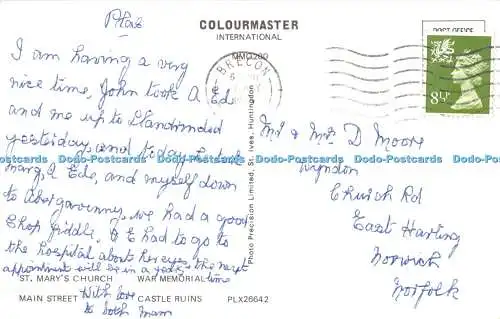 Place
COLOURMASTER
INTERNATIONAL
POST OFFICE
BRECON
8½P
I am having a very
nice time, John took A Ed
and me up to Llandrindid
yesterday, and today he took
marg, A Eds, and myself down
to Abergavenny, we had a good
Chop fiddle, A E had to go to
the hospital about her eyes, the next
appointment will be in a years time
With love
to both mam
Photo Precision Limited, St. Ives, Huntingdon
Mr & Mrs D Moore
Wyndon
Church Rd
East Harling
Norwich
Norfolk
Dodo-Postcards Dodo-Postcards Dodo-Postcards Dodo-Postcards Dodo-Postcards Dodo-Postcards Dodo-Postcards
ST. MARY'S CHURCH WAR MEMORIAL
MAIN STREET CASTLE RUINS PLX26642